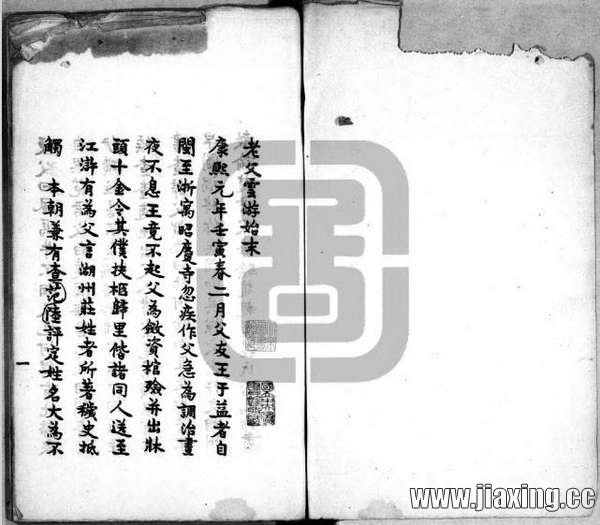 老父雲游始末
康熙元年壬寅春二月父友王于益者自
閩至浙寓昭慶寺忽疾作父急為調治晝
夜不息王竟不起父為斂資棺殮并出牀
頭十金令其僕扶柩歸里偕諸同人送至
江滸有為父言湖州莊姓者所著穢史抵
觸　本朝兼有查范陸評定姓名大為不
一
www.jiaxing.cc